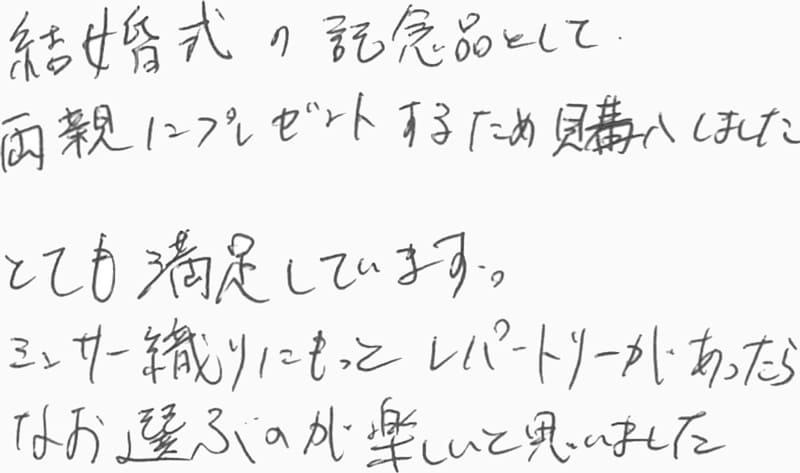 結婚式の記念品として
両親にプレゼントするため購入しました
とても満足しています。
ミンサー織りにもっとレパートリーがあったら
なお選ぶのが楽しいと思いました